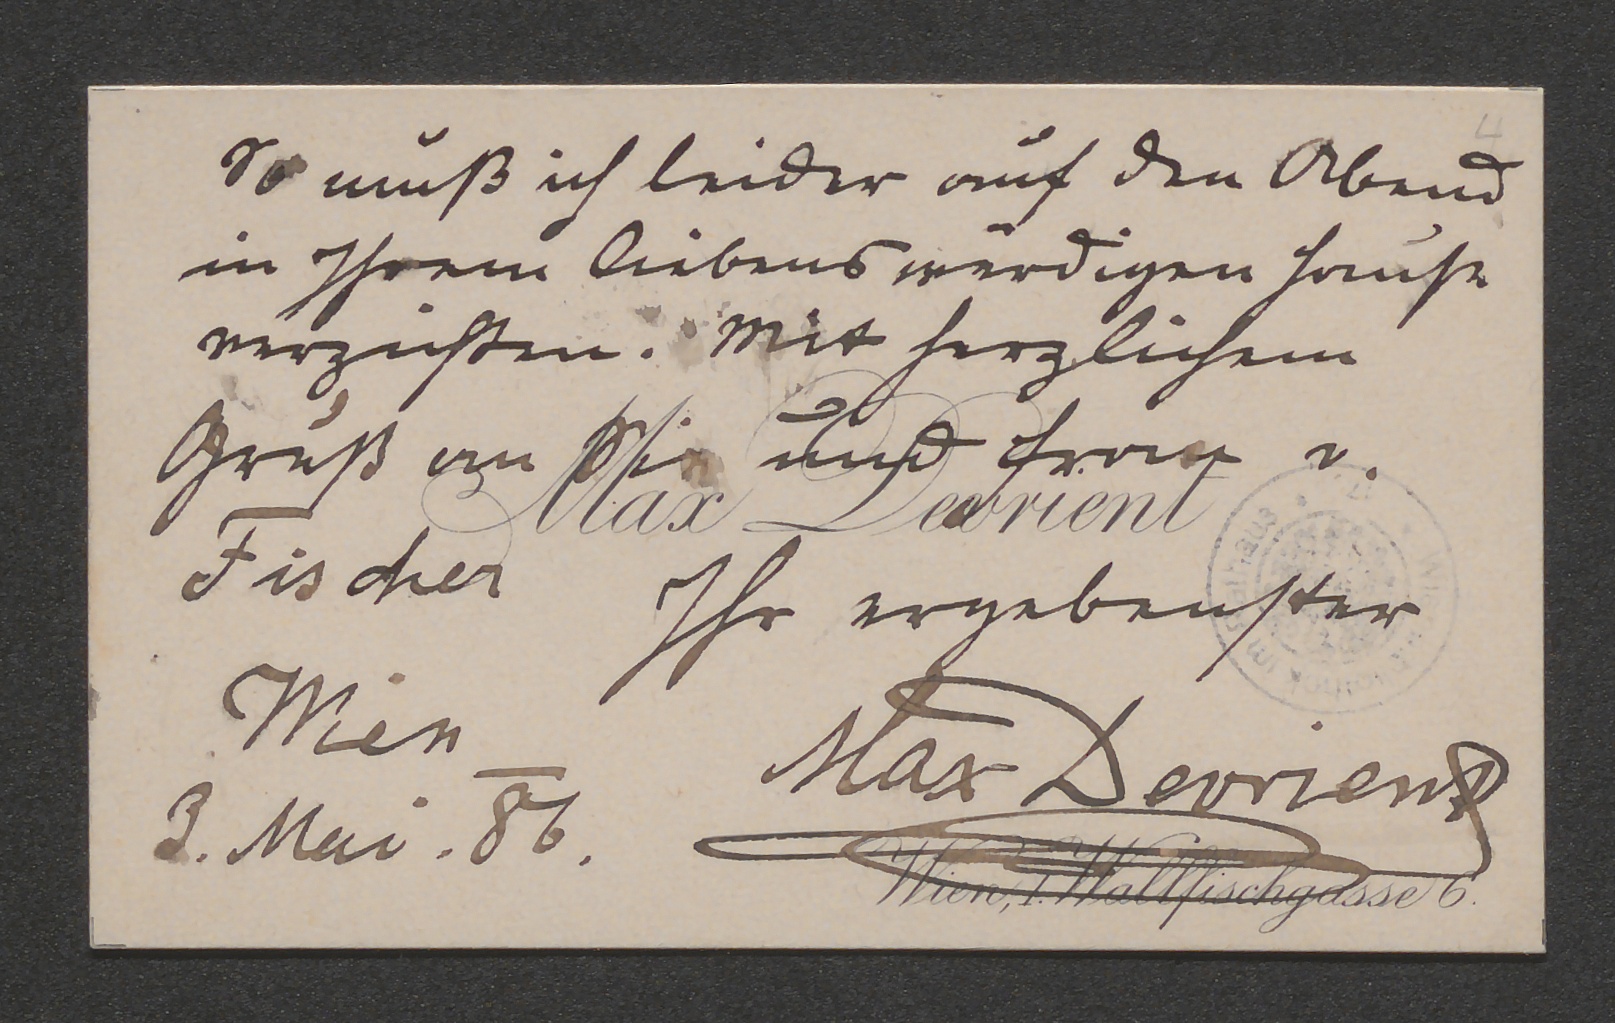 So muß ich leider auf den Abend
in Ihrem liebenswürdigen Hause
verzichten. Mit herzlichem
Gruß an Sie und Frau v.
Max Devrient
Fischer
Ihr ergebenster
Wien
3. Mai. 86.
Max Devrient
Wien, I. Wallfischgasse 6.